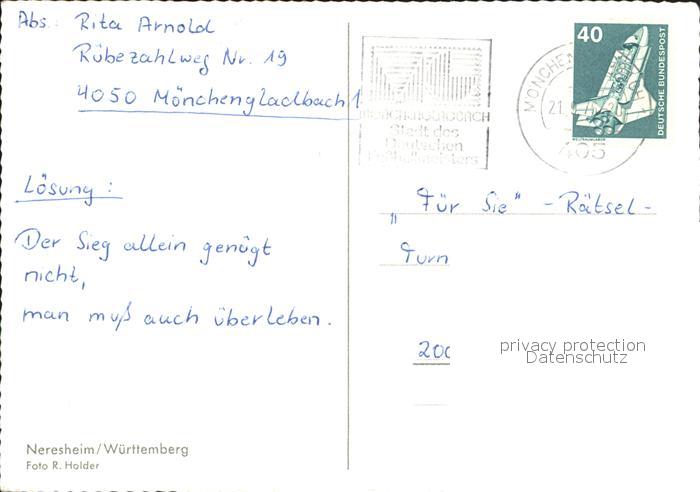 Abs.: Rita Arnold
Rübezahlweg Nr. 19
4050 Mönchengladbach 1
40
DEUTSCHE BUNDESPOST
MÖNCHENGLADBACH
Stadt des
Deutschen
Fußballmeisters
405
Lösung:
Der Sieg allein genügt
nicht,
man muß auch überleben.
„Für Sie" - Rätsel -
Turn
200
privacy protection
Datenschutz
Neresheim/Württemberg
Foto R. Holder